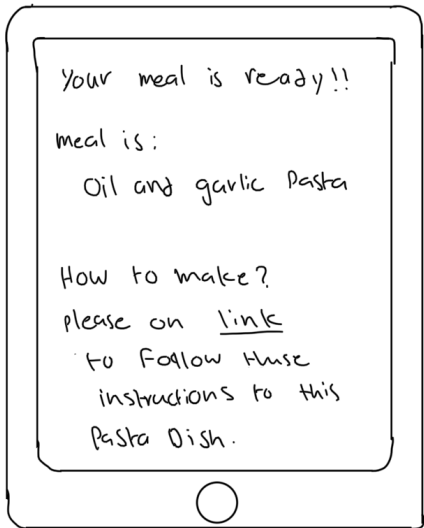 Your meal is ready!!
meal is:
Oil and garlic Pasta
How to make?
please on link
to Follow these
instructions to this
Pasta Dish.